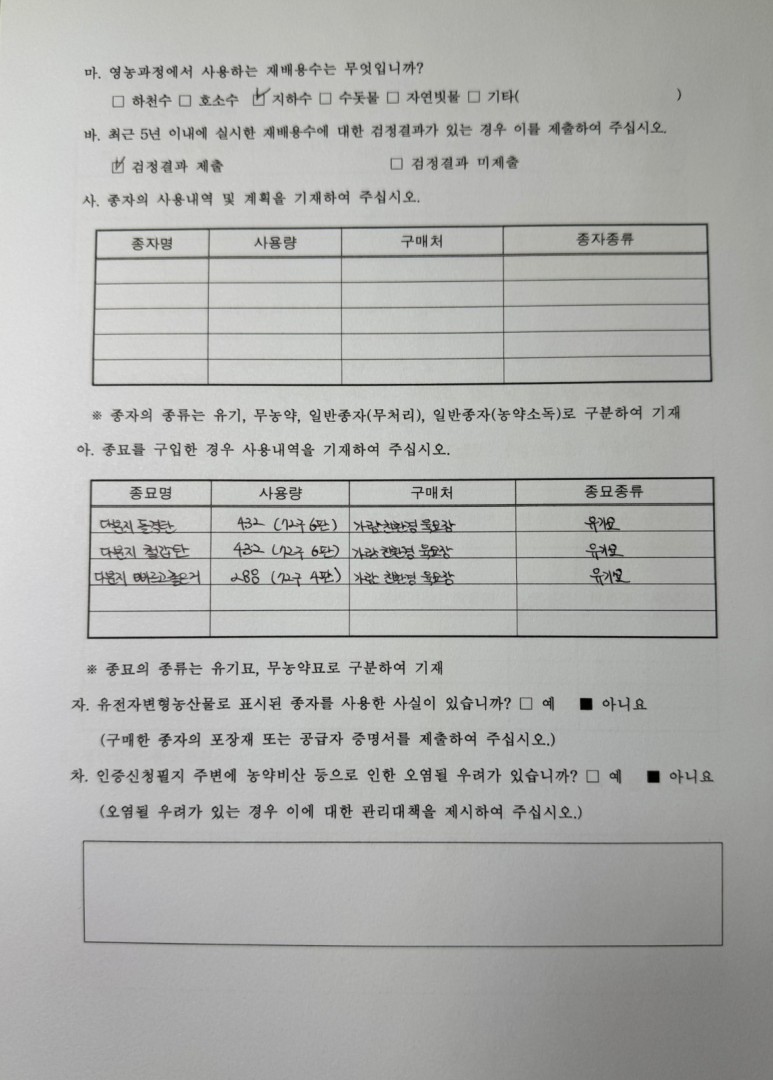 마. 영농과정에서 사용하는 재배용수는 무엇입니까?
□ 하천수 □ 호소수 ☑ 지하수 □ 수돗물 □ 자연빗물 □ 기타( )
바. 최근 5년 이내에 실시한 재배용수에 대한 검정결과가 있는 경우 이를 제출하여 주십시오.
☑ 검정결과 제출 □ 검정결과 미제출
사. 종자의 사용내역 및 계획을 기재하여 주십시오.
종자명 사용량 구매처 종자종류
※ 종자의 종류는 유기, 무농약, 일반종자(무처리), 일반종자(농약소독)로 구분하여 기재
아. 종묘를 구입한 경우 사용내역을 기재하여 주십시오.
종묘명 사용량 구매처 종묘종류
432 (72구 6판) 가람친환경 육묘장 유기묘
432 (72구 6판) 가람친환경 육묘장 유기묘
빠르고좋은거 288 (72구 4판) 가람 친환경 육묘장 유기묘
※ 종묘의 종류는 유기묘, 무농약묘로 구분하여 기재
자. 유전자변형농산물로 표시된 종자를 사용한 사실이 있습니까? □ 예 ■ 아니요
(구매한 종자의 포장재 또는 공급자 증명서를 제출하여 주십시오.)
차. 인증신청필지 주변에 농약비산 등으로 인한 오염될 우려가 있습니까? □ 예 ■ 아니요
(오염될 우려가 있는 경우 이에 대한 관리대책을 제시하여 주십시오.)